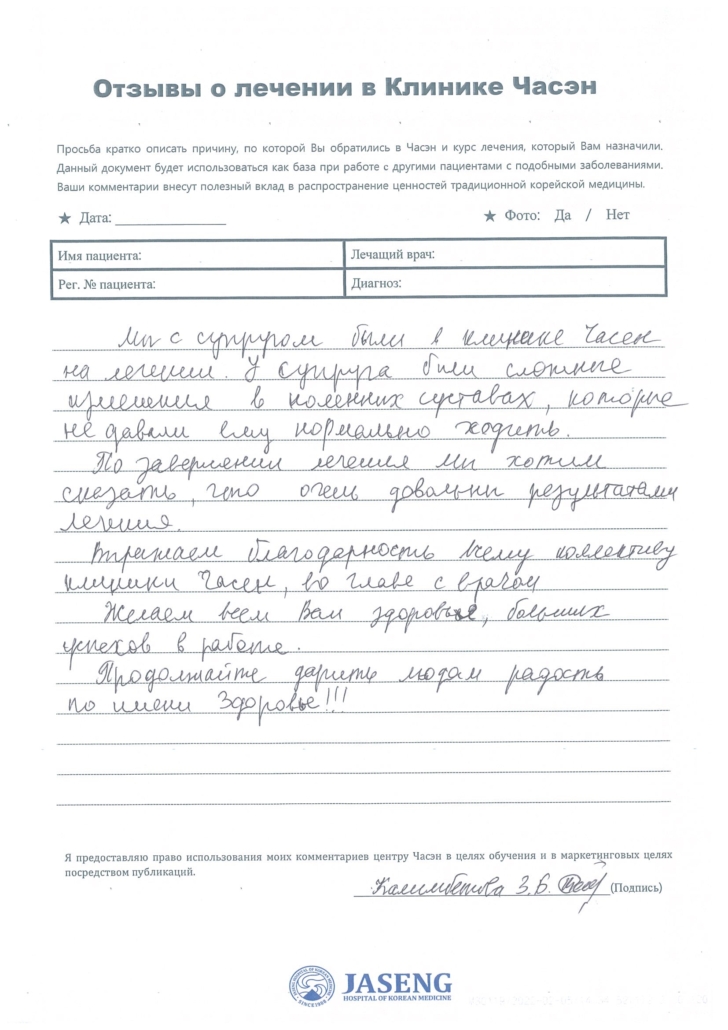 Отзывы о лечении в Клинике Часэн
Просьба кратко описать причину, по которой Вы обратились в Часэн и курс лечения, который Вам назначили.
Данный документ будет использоваться как база при работе с другими пациентами с подобными заболеваниями.
Ваши комментарии внесут полезный вклад в распространение ценностей традиционной корейской медицины.
★ Дата: ______________ ★ Фото: Да / Нет
Имя пациента: Лечащий врач:
Рег. № пациента: Диагноз:
Мы с супругом были в клинике Часен
на лечении. У супруга были сложные
изменения в коленных суставах, которые
не давали ему нормально ходить.
По завершении лечения мы хотим
сказать, что очень довольны результатами
лечения.
Выражаем благодарность всему коллективу
клиники Часен, во главе с врачом
Желаем всем Вам здоровье, больших
успехов в работе.
Продолжайте дарить людям радость
по имени Здоровье!!!
Я предоставляю право использования моих комментариев центру Часэн в целях обучения и в маркетинговых целях
посредством публикаций.
З.Б. (Подпись)
JASENG
HOSPITAL OF KOREAN MEDICINE